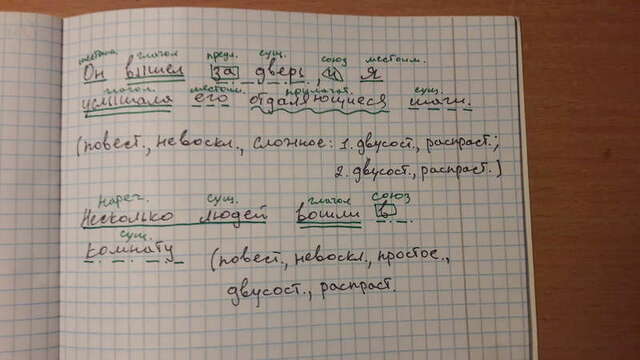 местоим. глагол предл. сущ. союз местоим.
Он вышел за дверь и я
глагол. местоим. прилагат. сущ.
услышала его отдаляющиеся шаги.
(повест., невоскл., сложное: 1. двусост., распрост.;
2. двусост., распрост.)
нареч. сущ. глагол союз
Несколько людей вошли в
сущ.
комнату (повест., невоскл., простое,
двусост., распрост.